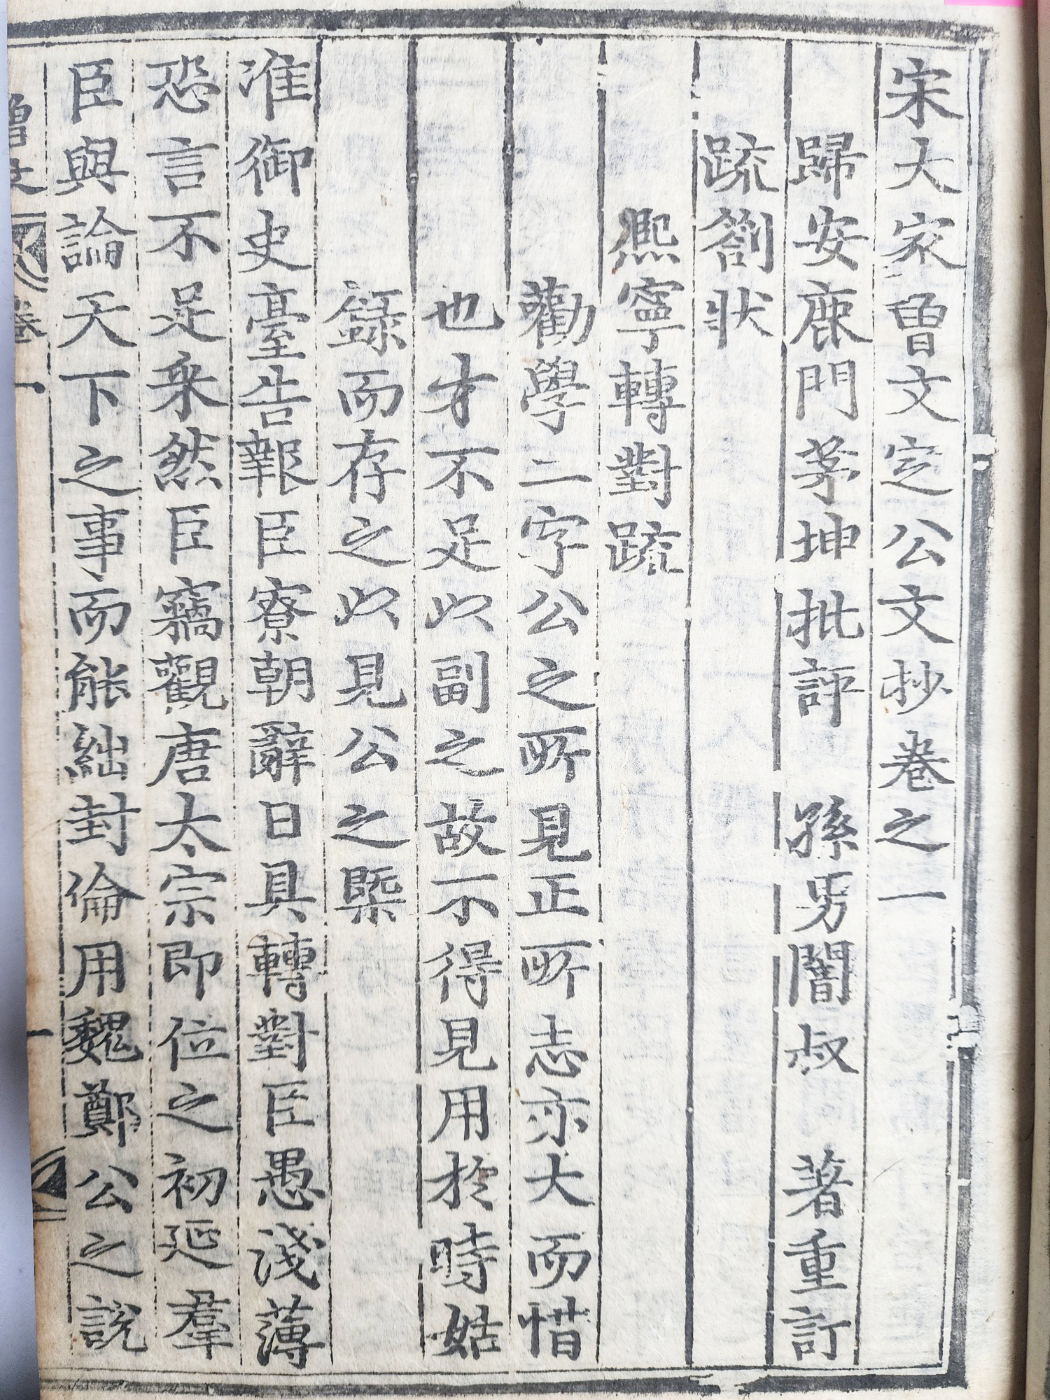 宋大家曾文定公文抄卷之一
歸安鹿門茅坤批評　孫男闇叔　著重訂
疏劄狀
熙寧轉對疏
勸學二字公之所見正所志亦大而惜
也才不足以副之故不得見用於時姑
錄而存之以見公之槩
准御史臺告報臣寮朝辭日具轉對臣愚淺薄
恐言不足采然臣竊觀唐太宗即位之初延羣
臣與論天下之事而能絀封倫用魏鄭公之說
卷一
一